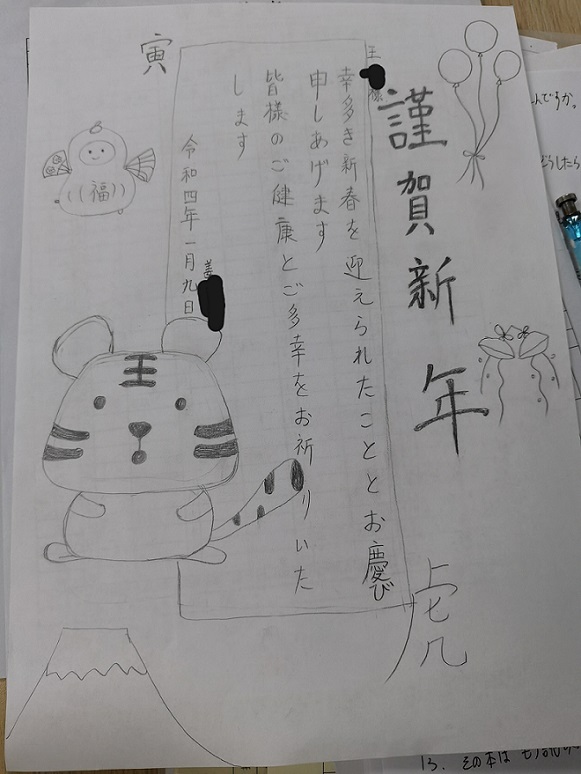 謹賀新年
王 様
幸多き新春を迎えられたこととお慶び
申しあげます
皆様のご健康とご多幸をお祈りいた
します
令和四年一月九日
寅
福
王
虎
んですか。
どうしたら
13. その本は